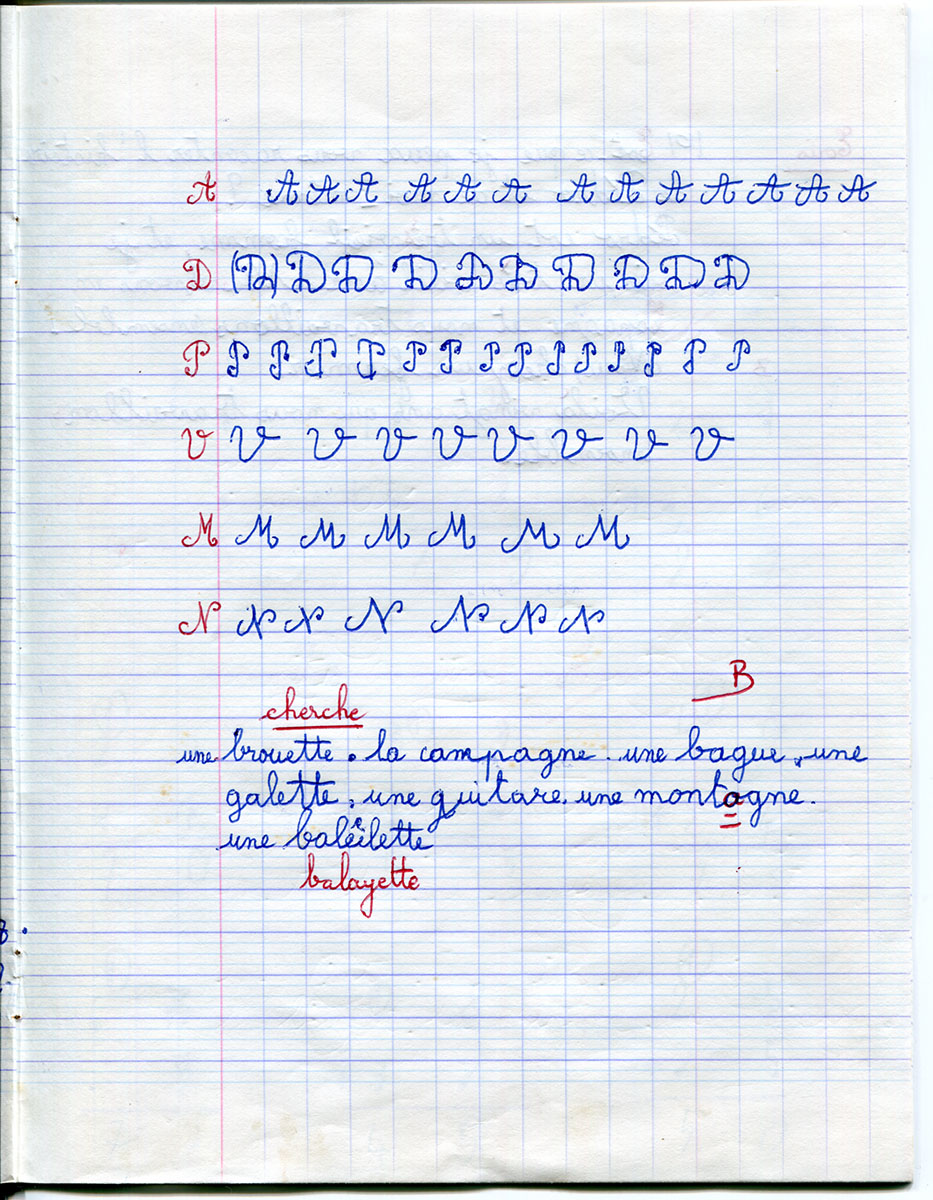 A A A A A A A A A A A A A A
D (D) D D D D D D D D D
P P P P P P P P P P P P P P P
V V V V V V V V V
M M M M M M M
N N N N N N N
B
cherche
une brouette. la campagne. une bague, une
galette, une guitare. une montagne.
une baleilette
balayette